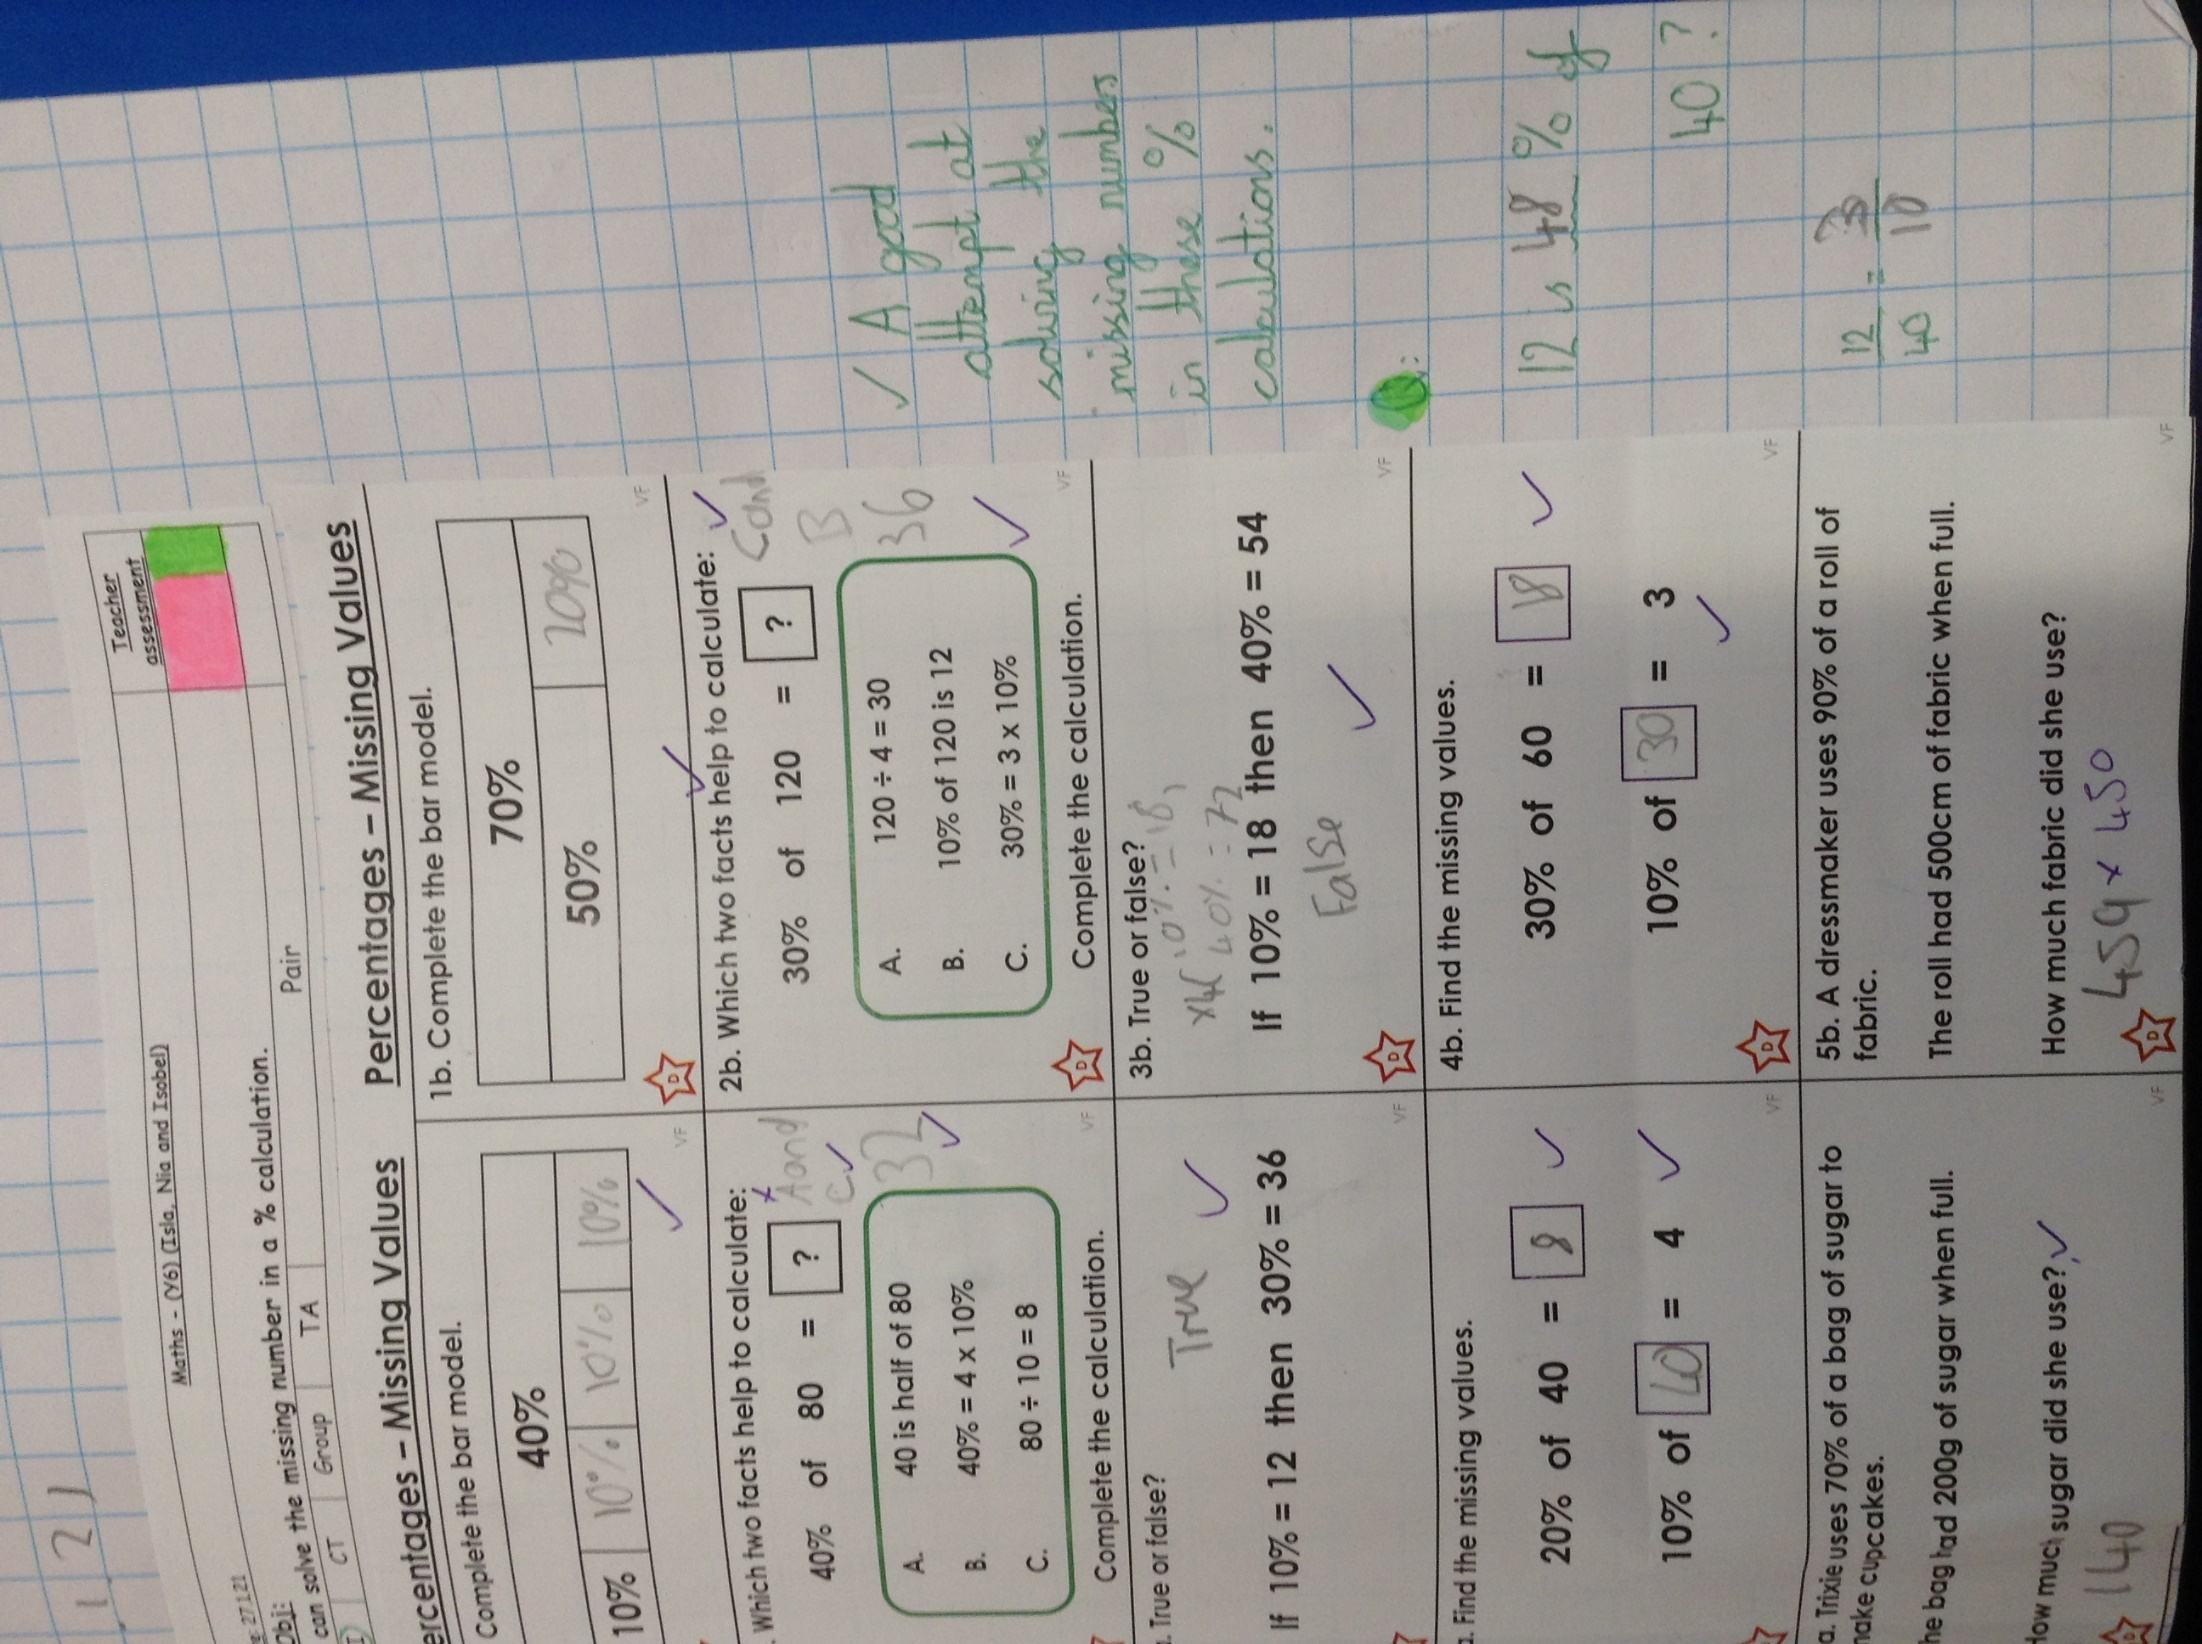 1 2 1
Maths - (Y6) (Isla, Nia and Isobel)
Teacher
assessment
27.1.21
Obj:
can solve the missing number in a % calculation.
CT Group TA Pair
ercentages – Missing Values
Complete the bar model.
40%
10% 10% 10% 10%
Which two facts help to calculate:
x A and
C ✓
40% of 80 = ?
32 ✓
A. 40 is half of 80
B. 40% = 4 x 10%
C. 80 ÷ 10 = 8
Complete the calculation.
VF
. True or false?
True ✓
If 10% = 12 then 30% = 36
VF
a. Find the missing values.
20% of 40 = 8 ✓
10% of 40 = 4 ✓
VF
a. Trixie uses 70% of a bag of sugar to
make cupcakes.
he bag had 200g of sugar when full.
How much sugar did she use? ✓
140
VF
Percentages – Missing Values
1b. Complete the bar model.
70%
50% 20%
VF
2b. Which two facts help to calculate: ✓
C and
B
30% of 120 = ?
36
A. 120 ÷ 4 = 30
B. 10% of 120 is 12
C. 30% = 3 x 10%
Complete the calculation.
VF
3b. True or false?
x4 10% = 18
40% = 72
If 10% = 18 then 40% = 54
False ✓
VF
4b. Find the missing values.
30% of 60 = 18 ✓
10% of 30 = 3 ✓
VF
5b. A dressmaker uses 90% of a roll of
fabric.
The roll had 500cm of fabric when full.
How much fabric did she use?
459 x 450
VF
✓ A good
attempt at
solving the
missing numbers
in these %
calculations.
12 is 48 % of
40 ?
12/40 = 3/10